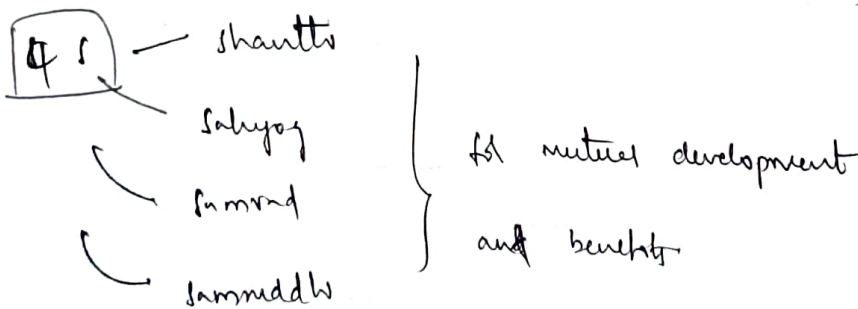 4 S
shantti
sahyog
samvad
sammriddhi
for mutual development
and benefits